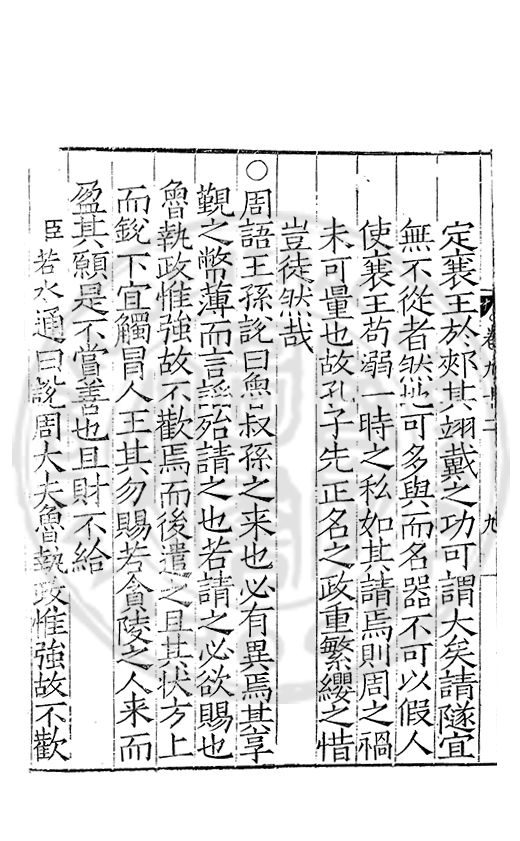 定襄王於郟其翊戴之功可謂大矣請隧宜
無不從者然地可多與而名器不可以假人
使襄王苟溺一時之私如其請焉則周之禍
未可量也故孔子先正名之政重繁纓之惜
豈徒然哉
○周語王孫說曰魯叔孫之来也必有異焉其享
覲之幣薄而言謟殆請之也若請之必欲賜也
魯執政惟強故不歡焉而後遣之且其状方上
而銳下宜觸冒人王其勿賜若貪陵之人来而
盈其願是不賞善也且財不給
臣若水通曰説周大夫魯執政惟強故不歡